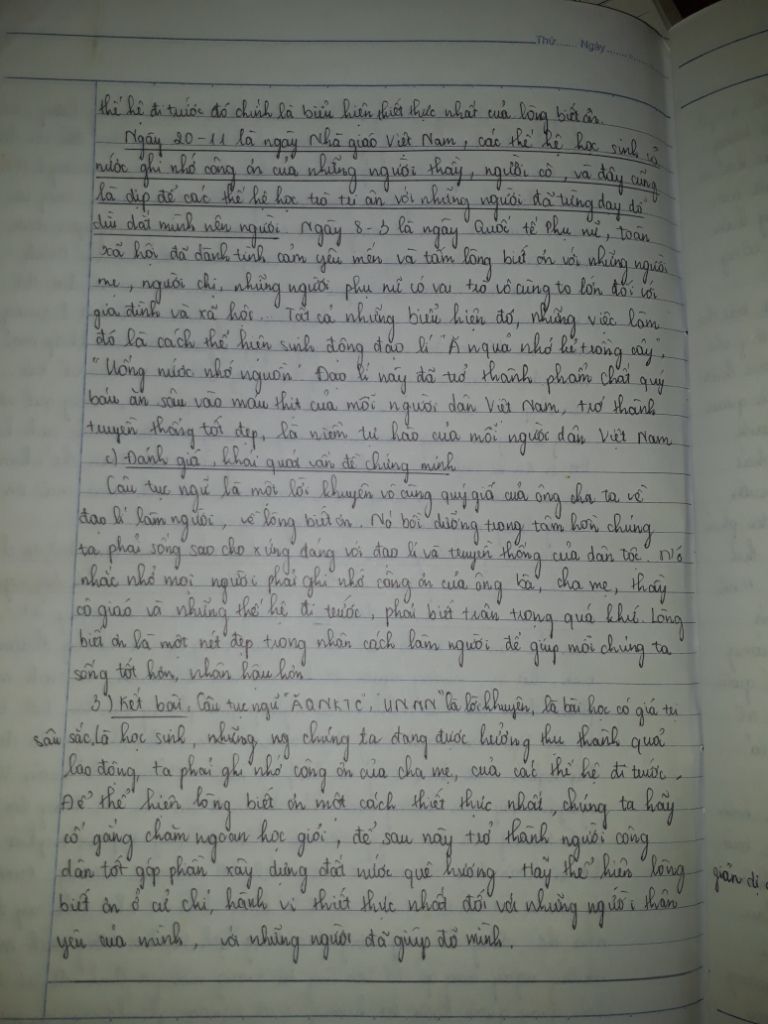 Thứ...... Ngày........
thế hệ đi trước đó chính là biểu hiện thiết thực nhất của lòng biết ơn.
Ngày 20-11 là ngày Nhà giáo Việt Nam, các thế hệ học sinh cả
nước ghi nhớ công ơn của những người thầy, người cô, và đây cũng
là dịp để các thế hệ học trò tri ân với những người đã từng dạy dỗ
dìu dắt mình nên người. Ngày 8-3 là ngày Quốc tế Phụ nữ, toàn
xã hội đã dành tình cảm yêu mến và tấm lòng biết ơn với những người
mẹ, người chị, những người phụ nữ có vai trò vô cùng to lớn đối với
gia đình và xã hội... Tất cả những biểu hiện đó, những việc làm
đó là cách thể hiện sinh động đạo lí "Ăn quả nhớ kẻ trồng cây",
"Uống nước nhớ nguồn" Đạo lí này đã trở thành phẩm chất quý
báu ăn sâu vào máu thịt của mỗi người dân Việt Nam, trở thành
truyền thống tốt đẹp, là niềm tự hào của mỗi người dân Việt Nam
c) Đánh giá, khái quát vấn đề chứng minh
Câu tục ngữ là một lời khuyên vô cùng quý giá của ông cha ta về
đạo lí làm người, về lòng biết ơn. Nó bồi dưỡng trong tâm hồn chúng
ta phải sống sao cho xứng đáng với đạo lí và truyền thống của dân tộc. Nó
nhắc nhở mọi người phải ghi nhớ công ơn của ông bà, cha mẹ, thầy
cô giáo và những thế hệ đi trước, phải biết trân trọng quá khứ. Lòng
biết ơn là một nét đẹp trong nhân cách làm người để giúp mỗi chúng ta
sống tốt hơn, nhân hậu hơn
3) Kết bài. Câu tục ngữ "ĂQNKTC", "UNNN" là lời khuyên, là bài học có giá trị
sâu sắc. Là học sinh, những ng chúng ta đang được hưởng thụ thành quả
lao động, ta phải ghi nhớ công ơn của cha mẹ, của các thế hệ đi trước.
Để thể hiện lòng biết ơn một cách thiết thực nhất, chúng ta hãy
cố gắng chăm ngoan học giỏi, để sau này trở thành người công
dân tốt góp phần xây dựng đất nước quê hương. Hãy thể hiện lòng
biết ơn ở cử chỉ, hành vi thiết thực nhất đối với những người thân
yêu của mình, với những người đã giúp đỡ mình.
giản dị